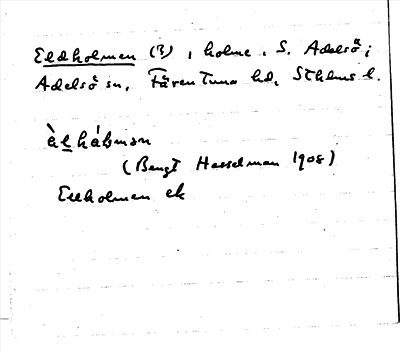 Eldholmen (?), holme, S. Adelsö i
Adelsö sn, Färentuna hd, Sthlms l.
(Bengt Hesselman 1908)
Ellholmen ek